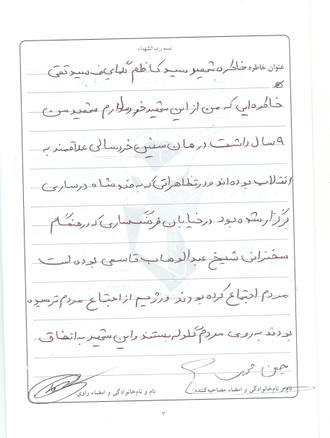 بسم رب الشهداء
عنوان خاطره خاطره شهید سید کاظم
خاطره ایی که من از این شهید خود دارم شهید من
۹ سال داشت در همان سنین خردسالی علاقمند به
انقلاب بوده اند و در تظاهراتی که به ضد شاه در ساری
برگزار شده بود در خیابان فرهنگ ساری که در هنگام
سخنرانی شیخ عبدالوهاب قاسمی بوده است
مردم اجتماع کرده بودند و رژیم از اجتماع مردم ترسیده
بودند به روی مردم گلوله بستند و این شهید به اتفاق
نام و نام خانوادگی و امضاء مصاحبه کننده
نام و نام خانوادگی و امضاء راوی
۲